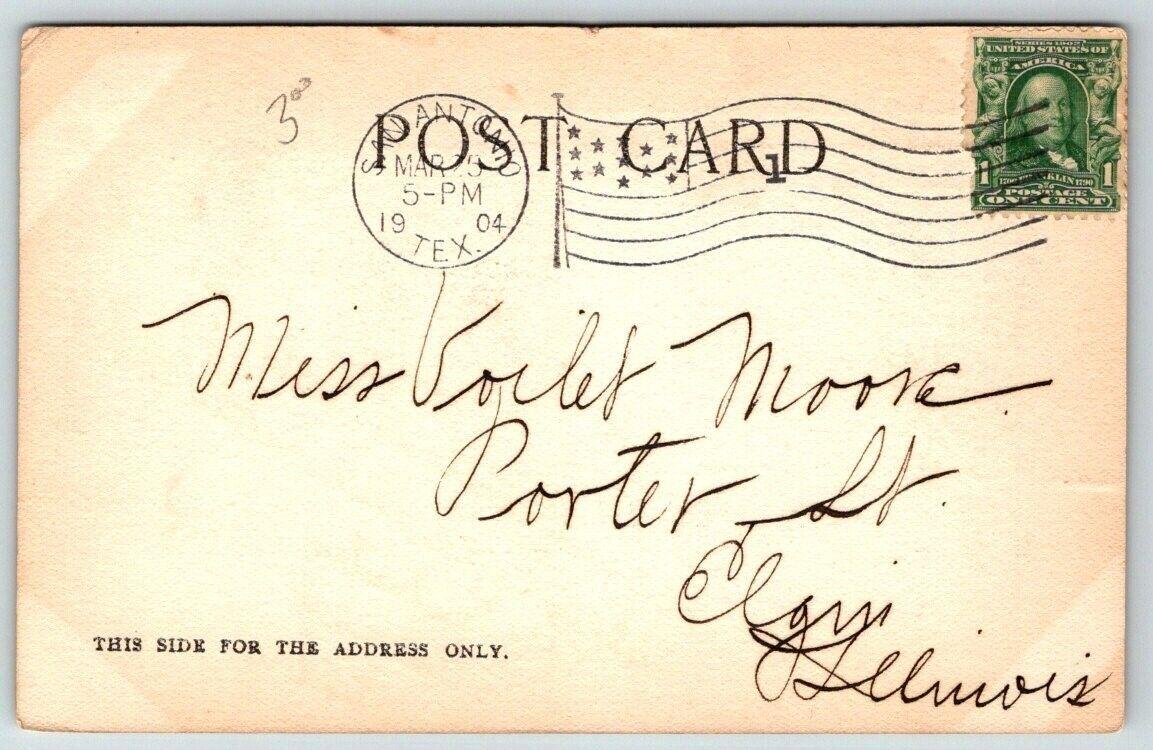 3⁰⁰
POST CARD
SAN ANTONIO
MAR 25
5-PM
19 04
TEX.
1
SERIES 1902
UNITED STATES OF
AMERICA
1 1706 FRANKLIN 1790 1
POSTAGE
ONE CENT
Miss Voilet Moore
Porter St.
Elgin
Illinois
THIS SIDE FOR THE ADDRESS ONLY.